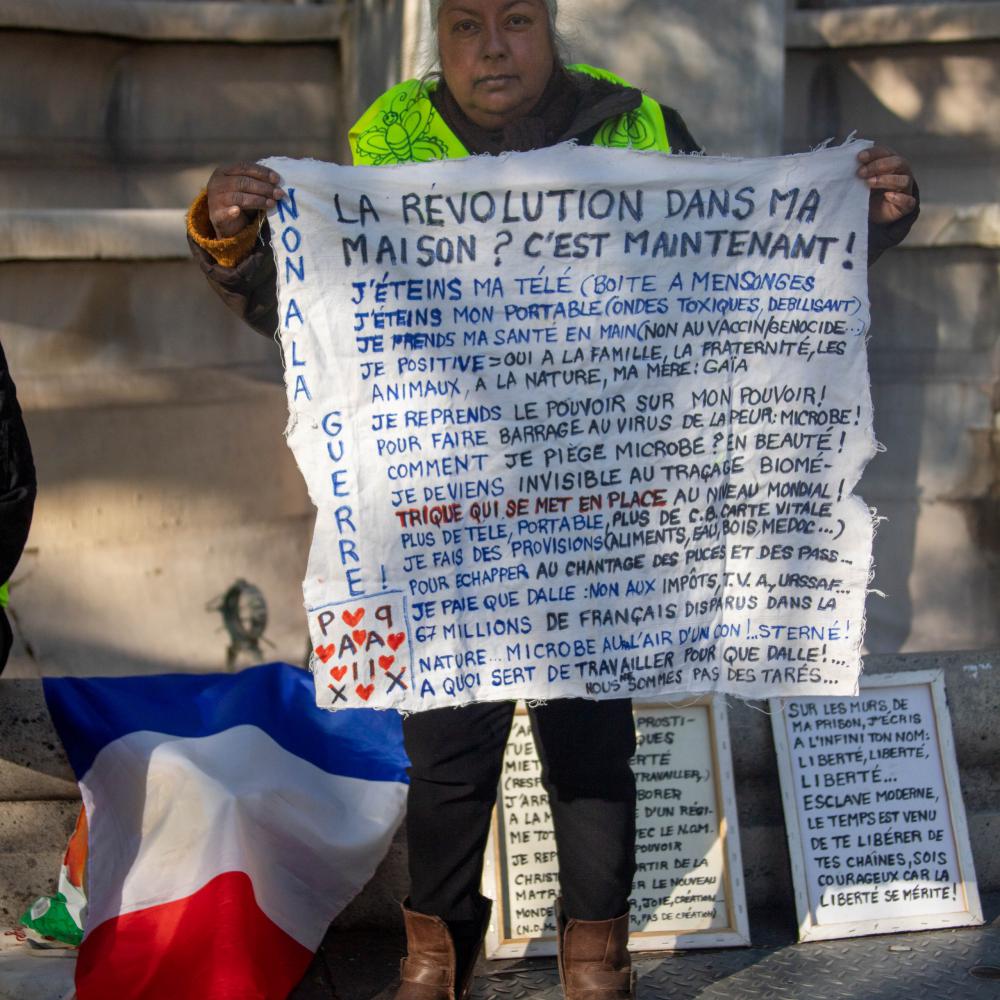 NON A LA GUERRE !
LA RÉVOLUTION DANS MA
MAISON ? C'EST MAINTENANT !
J'ÉTEINS MA TÉLÉ (BOITE A MENSONGES
J'ÉTEINS MON PORTABLE (ONDES TOXIQUES, DEBILISANT)
JE PRENDS MA SANTÉ EN MAIN (NON AU VACCIN/GENOCIDE...
JE POSITIVE = OUI A LA FAMILLE, LA FRATERNITÉ, LES
ANIMAUX, A LA NATURE, MA MÈRE : GAÏA
JE REPRENDS LE POUVOIR SUR MON POUVOIR !
POUR FAIRE BARRAGE AU VIRUS DE LA PEUR : MICROBE !
COMMENT JE PIÈGE MICROBE ? EN BEAUTÉ !
JE DEVIENS INVISIBLE AU TRAÇAGE BIOMÉ-
TRIQUE QUI SE MET EN PLACE AU NIVEAU MONDIAL !
PLUS DE TELE, PORTABLE, PLUS DE C.B. CARTE VITALE
JE FAIS DES PROVISIONS (ALIMENTS, EAU, BOIS, MEDOC...)
POUR ECHAPPER AU CHANTAGE DES PUCES ET DES PASS...
JE PAIE QUE DALLE : NON AUX IMPÔTS, T.V.A, URSSAF...
67 MILLIONS DE FRANÇAIS DISPARUS DANS LA
NATURE... MICROBE A L'AIR D'UN CON !..STERNÉ !
A QUOI SERT DE TRAVAILLER POUR QUE DALLE !...
NOUS NE SOMMES PAS DES TARÉS...
P ♥ q
♥ A ♥ A ♥
♥ I I ♥
X ♥ X
PROSTI-
TUE QUES
MIET ERTÉ
(RESP TRAVAILLER,)
J'ARR BORER
A LA M D'UN RÉGI-
ME TO EC LE N.O.M.
POUVOIR
JE REP RTIR DE LA
CHRIST ER LE NOUVEAU
MATR R, JOIE, CRÉATION...
MONDE R, PAS DE CRÉATION)
SUR LES MURS DE
MA PRISON, J'ÉCRIS
A L'INFINI TON NOM :
LIBERTÉ, LIBERTÉ,
LIBERTÉ...
ESCLAVE MODERNE,
LE TEMPS EST VENU
DE TE LIBÉRER DE
TES CHAÎNES, SOIS
COURAGEUX CAR LA
LIBERTÉ SE MÉRITE !